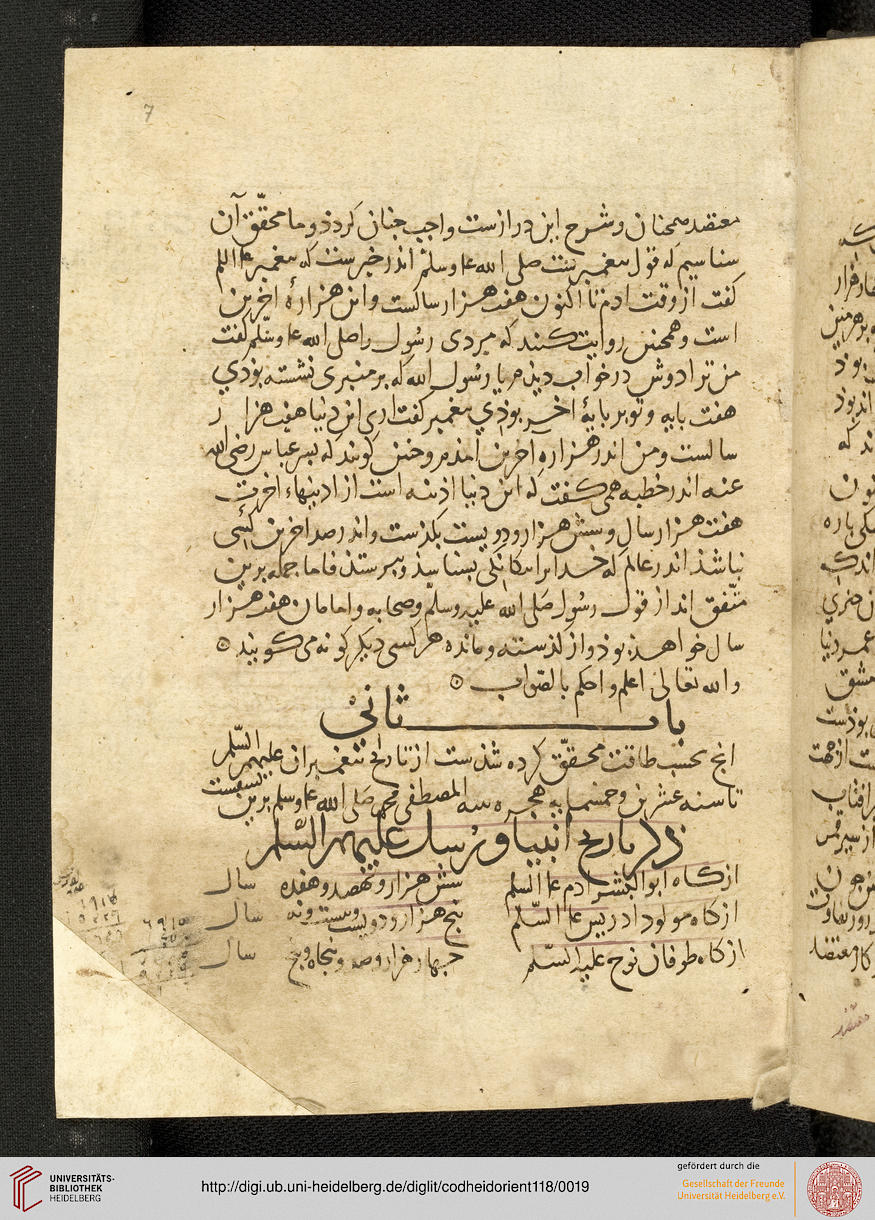 7
معتقد همچنان و شرح این درازست واجب چنان کردذ و ما محقّق آن
شناسیم که قول پیغمبرست صلی الله علیه وسلم اندر خبرست که پیغمبر علیه السلم
کفت از وقت ادم تا اکنون هفت هزار سالست و این هزارهٔ اخرین
است و همچنین روایت کنند که مردی رسول را صلی الله علیه وسلّم کفت
من ترا دوش در خواب دیذم یا رسول الله که بر منبری نشسته بوذی
هفت پایه و تو بر پایهٔ اخر بوذی پیغمبر کفت اری این دنیا هفت هزار
سالست و من اندر هزاره آخرین امذم و چنین کویند که پسر عباس رضی الله
عنه اندر خطبه همی کفت که این دنیا اذینه است از ادینهاء اخرت
هفت هزار سال و شش هزار و دویست بکذشت و اندر صد اخرین کسی
نباشذ اندر عالم که خدایرا بیکانکی بشناسذ و بپرستذ فاما جمله برین
متّفق اند از قول رسول صلی الله علیه وسلّم و صحابه و امامان هفت هزار
سال خواهذ بوذ و از کذشته و مانده هر کسی دیکر کونه می کویند
والله تعالی اعلم واحکم بالصّواب
باب ثانی
انچ بحسب طاقت محقّق کرده شذست از تاریخ پیغمبران علیهم السّلم
تا سنه عشرین وخمسمایه هجریه المصطفی محمد صلی الله علیه وسلم برین نسقست
ذکر تاریخ انبیا و رسل علیهم السّلم
از کاه ابوالبشر ادم علیه السلم شش هزار و نهصد و هفده سال
از کاه مولود ادریس علیه السّلم پنج هزار و دویست و بیست و نه سال
از کاه طوفان نوح علیه السّلم چهار هزار و صد و پنجاه و پنج سال
UNIVERSITÄTS-
BIBLIOTHEK
HEIDELBERG
http://digi.ub.uni-heidelberg.de/diglit/codheidorient118/0019
gefördert durch die
Gesellschaft der Freunde
Universität Heidelberg e.V.